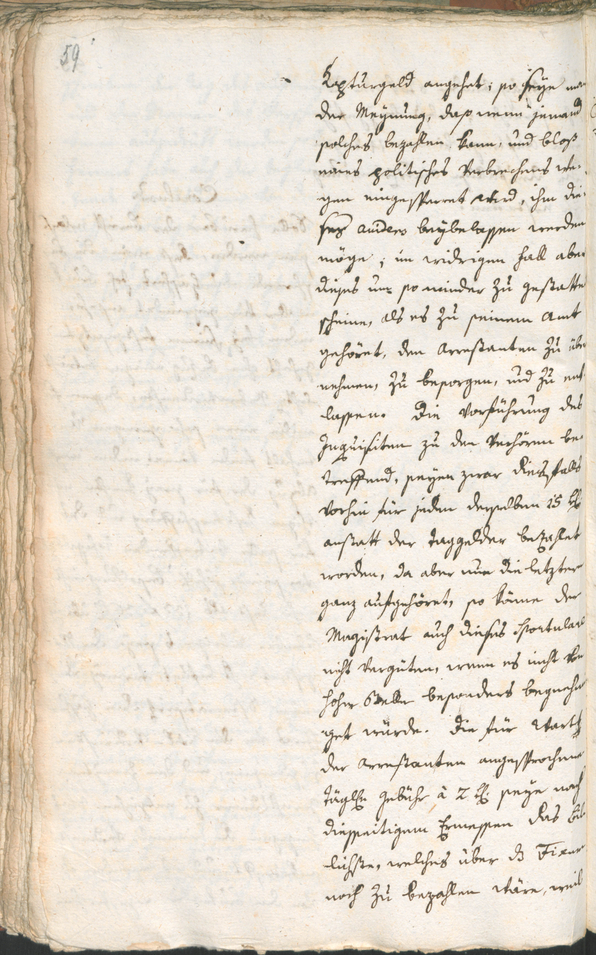 59
Kapturgeld angehet; so seye
der Meynung, dass wenn jemand
solches bezahlen kann, und bloß
eines politischen Verbrechens we-
gen eingesperret wird, ihm die-
ses anders beybelassen werden
möge; im widrigen Fall aber
dieses um so minder zu gestatten
scheine, als es zu seinem Amt
gehöret, den Arrestanten zu über
nehmen, zu besorgen, und zu ent
lassen. Die Vorführung des
Inquisiten zu den Verhören be-
treffend, seyen zwar diesfalls
vorhin für jeden derselben 15 Xr
anstatt der Taggelder bezahlet
worden, da aber nun die letztern
ganz aufgehöret, so könne der
Magistrat auch dieses Sportulare
nicht vergüten, wenn es nicht von
hoher Stelle besonders begneh
get würde. Die für Wartung
der Arrestanten angesprochene
tägle Gebühr à 2 Xr seye nach
diesseitigem Ermessen das bil
lichste, welches über d. Fixum
noch zu bezahlen wäre, weil